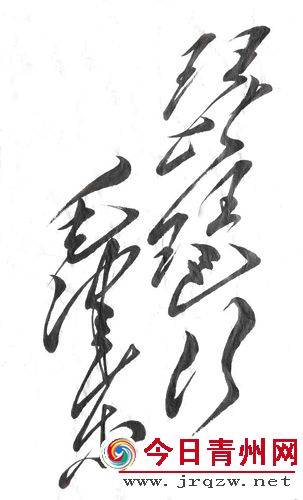 琵琶行
毛泽东
今日青州网
www.jrqzw.net